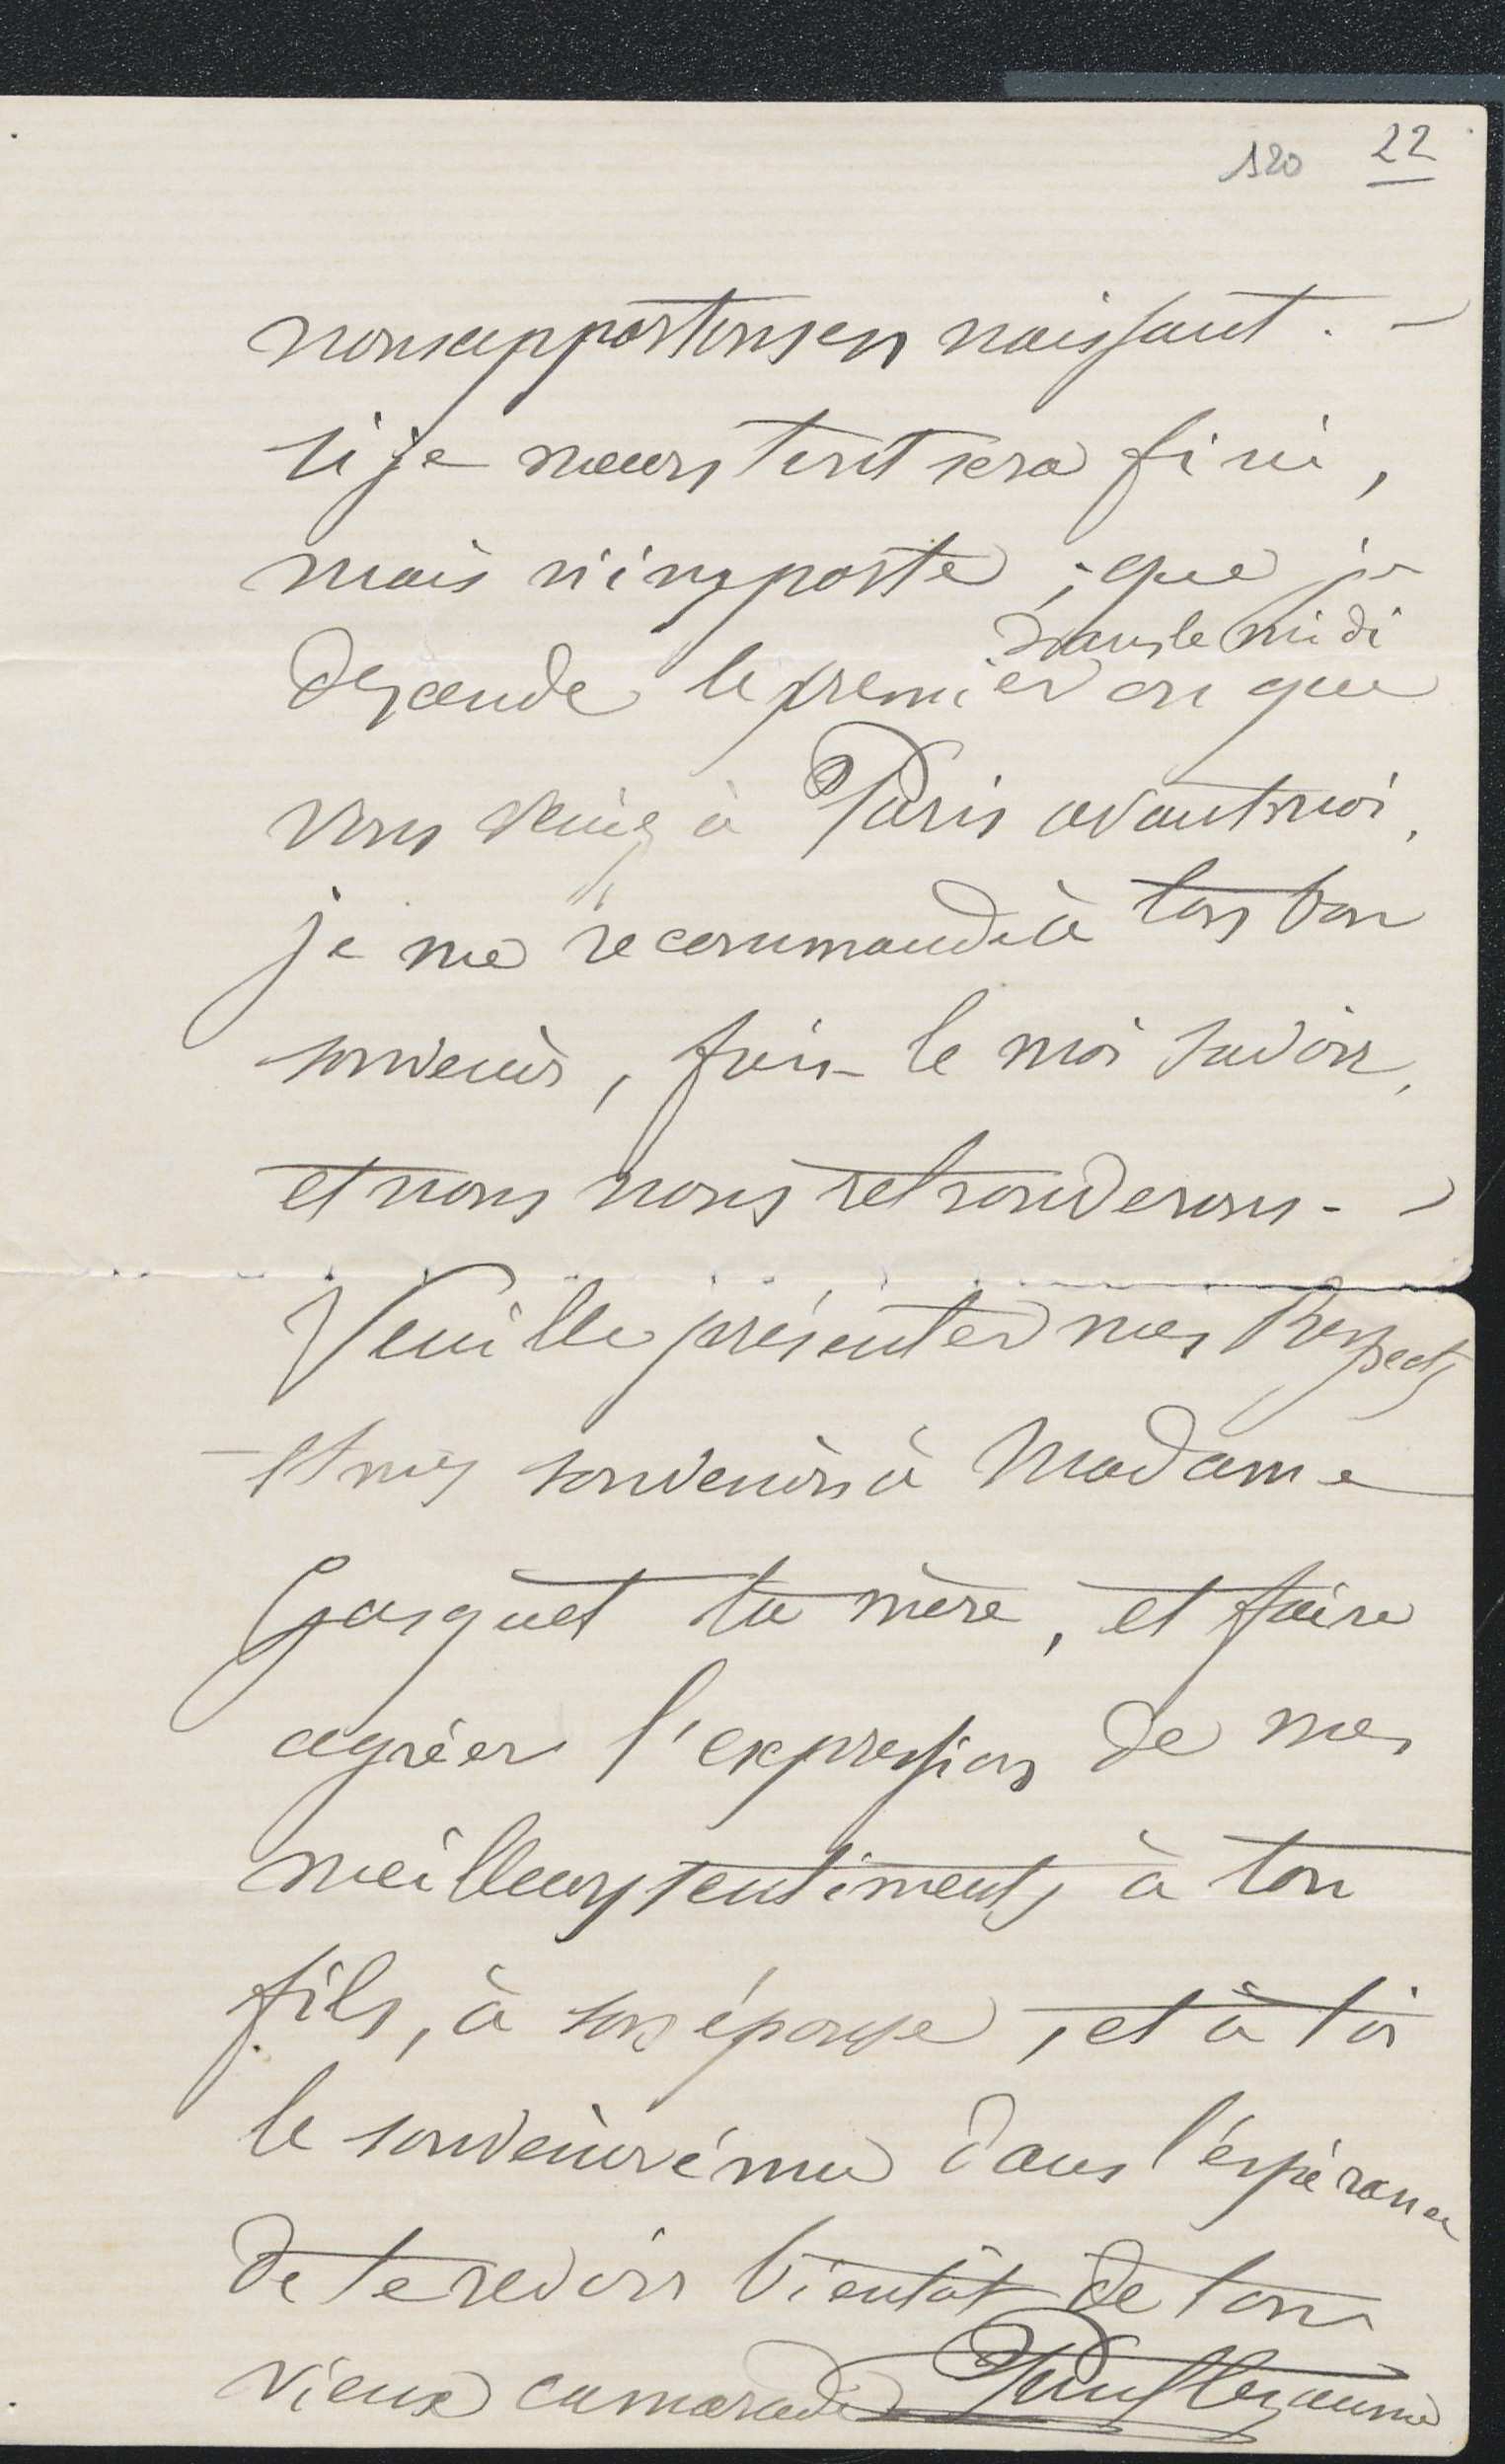 120 22
nous apportons en naissant. —
si je meurs tout sera fini,
mais n'importe ; que je
dans le midi
descende le premier ou que
vous veniez à Paris avant moi,
je me recommande à ton bon
souvenir, fais-le moi savoir,
et nous nous retrouverons. —
Veuille présenter mes Respects
et mes souvenirs à Madame
Gasquet ta mère, et faire
agréer l'expression de mes
meilleurs sentiments à ton
fils, à son épouse, et à toi
le souvenir ému dans l'espérance
de te revoir bientôt de ton
vieux camarade Paul Cezanne